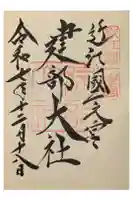 近江國一之宮
建部大社
令和七年十二月十八日